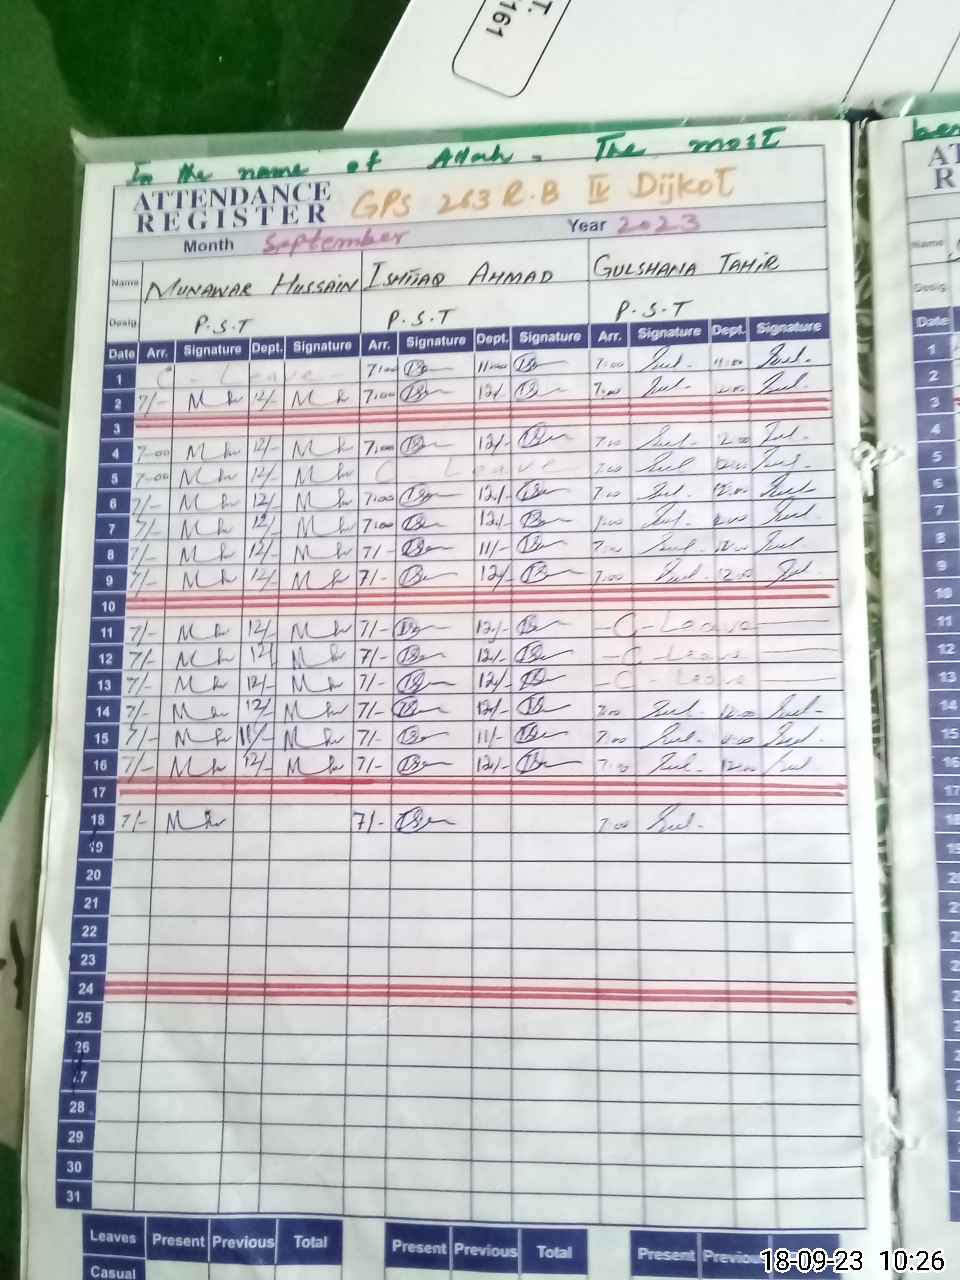 T.
161
In the name of Allah. The most
ben
ATTENDANCE
REGISTER
GPS 263 R.B IV Dijkot
AT
R
Month September Year 2023
Name MUNAWAR HUSSAIN ISHTIAQ AHMAD GULSHANA TAHIR
Name
Desig. P.S.T P.S.T P.S.T
Desig.
Date Arr. Signature Dept. Signature Arr. Signature Dept. Signature Arr. Signature Dept. Signature
Date
1 C - Leave 7:00 11:00 7:00 11:00
2 7/- 12/- 7:00 12/- 7:00
3
4 7-00 12/- 7:00 12/- 7:00 12:00
5 7-00 12/- C Leave 7:00 12:00
6 7/- 12/- 7:00 12/- 7:00 12:00
7 7/- 12/- 7:00 12/- 7:00 12:00
8 7/- 12/- 7/- 11/- 7:00 12:00
9 7/- 12/- 7/- 12/- 7:00 12:00
10
11 7/- 12/- 7/- 12/- - C - Leave
12 7/- 12/- 7/- 12/- - C - Leave
13 7/- 12/- 7/- 12/- - C - Leave
14 7/- 12/- 7/- 12/- 7:00 12:00
15 7/- 11/- 7/- 11/- 7:00
16 7/- 12/- 7/- 12/- 7:00 12:00
17
18 7/- 7/- 7:00
19
20
21
22
23
24
25
26
27
28
29
30
31
Leaves Present Previous Total Present Previous Total Present Previous
Casual
18-09-23 10:26